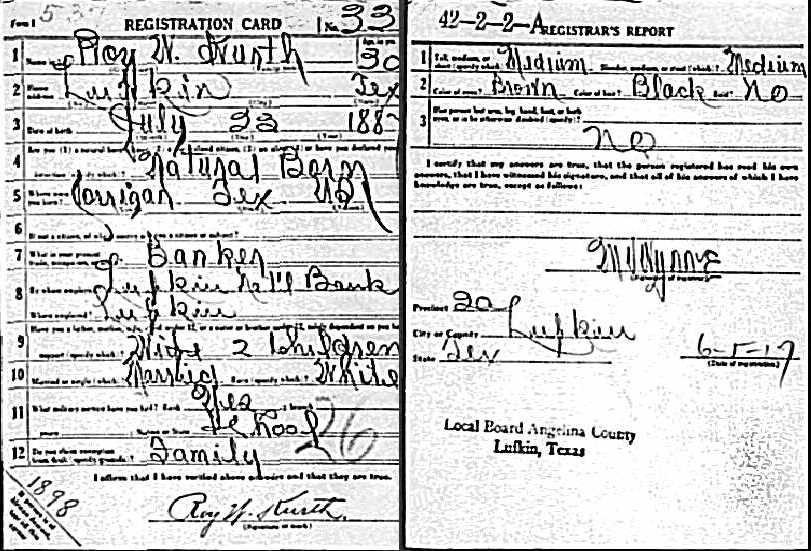 Form 1 53 REGISTRATION CARD No. 33
1 Roy W. Kurth 30
2 Lufkin Tex
3 Date of birth July 22 1887
4 Natural Born
5 Where were you born? Corrigan Tex
6 If not a citizen, of what country are you a citizen or subject?
7 What is your present Banker
8 By whom employed? Lufkin Nat'l Bank
Where employed? Lufkin
9 Have you a father, mother, wife, child under 12, or a sister or brother under 12, solely dependent on you
support (specify which)? Wife 2 Children
10 Married or single (which)? Married Race (specify which)? White
11 What military service have you had? Rank Yes branch
years Nation or State School
26
12 Do you claim exemption from draft (specify grounds)? Family
I affirm that I have verified above answers and that they are true.
1898
Roy W. Kurth.
42-2-2-A REGISTRAR'S REPORT
1 Tall, medium, or short (specify which)? Medium Slender, medium, or stout (which)? Medium
2 Color of eyes? Brown Color of hair? Black Bald? No
3 Has person lost arm, leg, hand, foot, or both
eyes, or is he otherwise disabled (specify)?
No
I certify that my answers are true, that the person registered has read his own
answers, that I have witnessed his signature, and that all of his answers of which I have
knowledge are true, except as follows:
(Signature of registrar)
Precinct 20
City or County Lufkin
State Tex
6-5-17
(Date of registration)
Local Board Angelina County
Lufkin, Texas